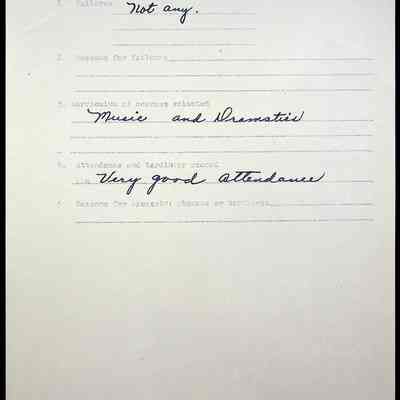 1. Failures Not any.
2. Reasons for failures
3. Curriculum or courses selected
Music and Dramatics
4. Attendance and tardiness record
Very good attendance
5. Reasons for absence or